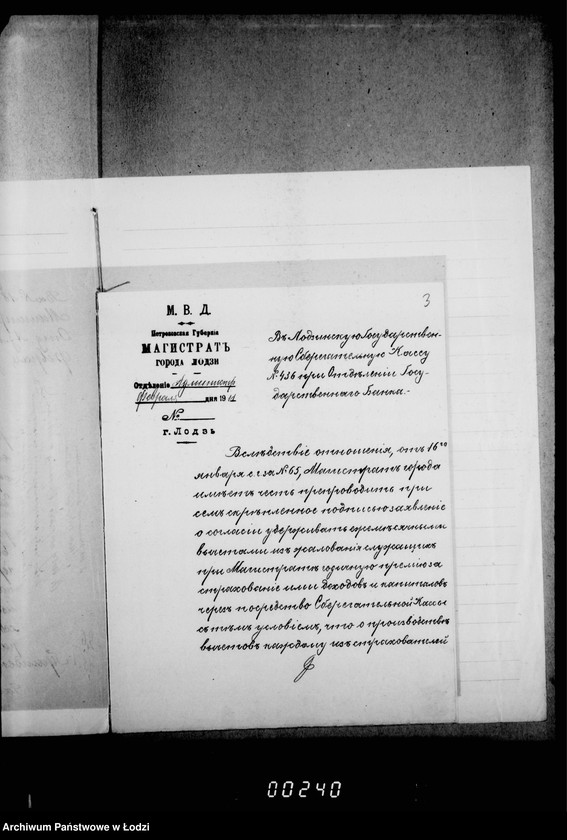 3
М. В. Д.
Петроковская Губернія
МАГИСТРАТЪ
ГОРОДА ЛОДЗИ
Отдѣленіе Администр.
Феврал дня 1914
№
г. Лодзь
Въ Лодзинскую Государствен-
ную Сберегательную Кассу
№ 436 при Отдѣленіи Госу-
дарственнаго Банка.-
Вслѣдствіе отношенія, отъ 16го
января с.г. за № 65, Магистратъ города
имѣетъ честь препроводить при
семъ скрѣпленное подписью заявленіе
о согласіи удерживать ежемѣсячными
вычетами изъ жалованія служащихъ
при Магистратѣ годичную премію за
страхованіе ими доходовъ и капиталовъ
черезъ посредство Сберегательной Кассы
съ тѣмъ условіемъ, что о производствѣ
вычетовъ каждому изъ страхователей
00240
Archiwum Państwowe w Łodzi